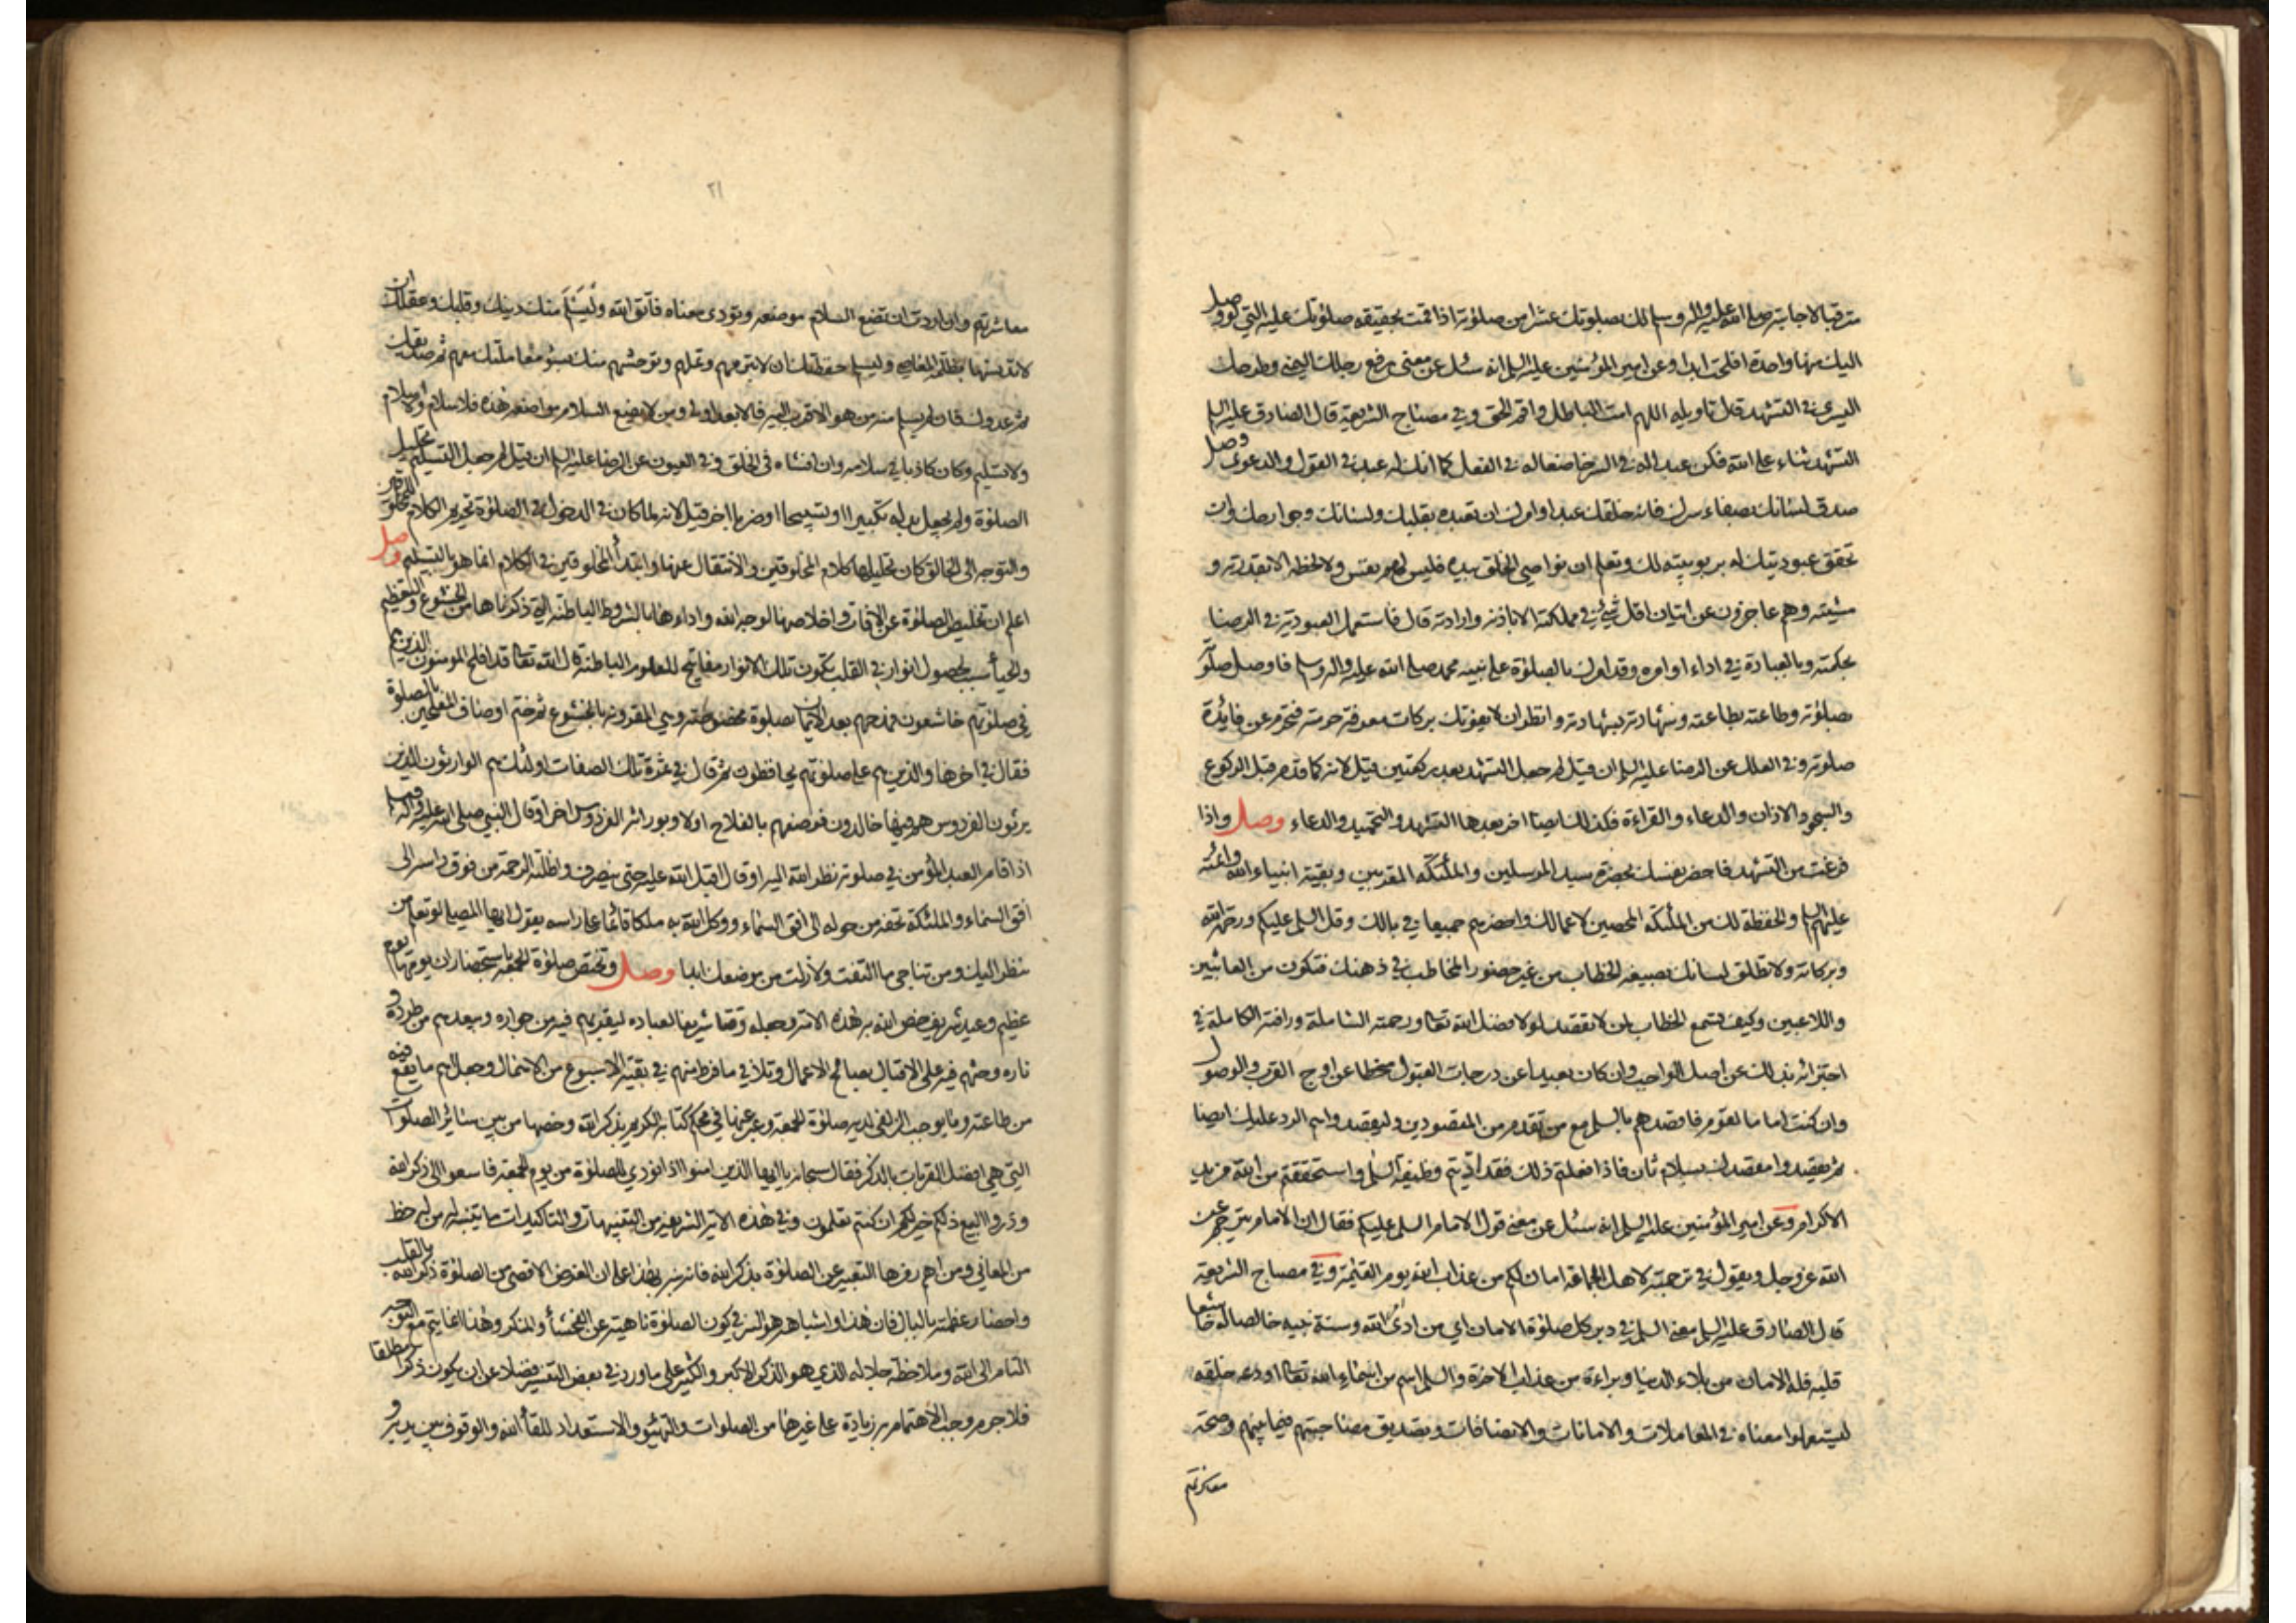 مترقبا لاجابته صلى الله عليه واله وسلم لك بصلوتك عشرا من صلوته اذا قمت بحقيقه صلوتك عليه التي لو وصل
اليك منها واحدة افلحت ابدا وعن امير المؤمنين عليه السلم انه سئل عن معنى رفع رجلك اليمنى وطرحك
اليسرى في التشهد قال تاويله اللهم امت الباطل واقم الحق وفي مصباح الشريعة قال الصادق عليه السلم
التشهد ثناء على الله فكن عبدا له في السر خاضعا له في الفعل كما انك له عبد في القول والدعوى وصل
صدق لسانك بصفاء سرك فانه خلقك عبدا وامرك ان تعبده بقلبك ولسانك وجوارحك وان
تحقق عبوديتك له بربوبيته لك وتعلم ان نواصي الخلق بيده فليس لهم نفس ولا لحظه الا بقدرته و
مشيته وهم عاجزون عن اتيان اقل شيئ في مملكته الا باذنه وارادته قال فاستعمل العبودية في الرضا
بحكمته وبالعبادة في اداء اوامره وقد امرك بالصلوة على نبيه محمد صلى الله عليه واله وسلم فاوصل صلوته
بصلوته وطاعته بطاعته وشهادته بشهادته وانظر ان لا يفوتك بركات معرفة حرمته فتحرم عن فايدة
صلوته وفي العلل عن الرضا عليه السلم ان قيل لم جعل التشهد بعد ركعتين قيل لانه كما قدم قبل الركوع
والسجود الاذان والدعاء والقراءة فكذلك ايضا اخر بعدها التشهد والتحميد والدعاء وصل واذا
فرغت من التشهد فاحضر نفسك بحضرة سيد المرسلين والملئكه المقربين وبقية انبياء الله وائمته
عليهم السلم والحفظة لك من الملئكه المحصين لاعمالك واحضرهم جميعا في بالك وقل السلم عليكم ورحمة الله
وبركاته ولا تطلق لسانك بصيغه الخطاب من غير حضور المخاطب في ذهنك فتكون من العابثين
واللاعبين وكيف يسمع الخطاب لمن لا يقصد لولا فضل الله تعالى ورحمته الشاملة ورافته الكاملة في
اجتزائه بذلك عن اصل الواجب وان كان بعيدا عن درجات القبول منحطا عن اوج القرب والوصول
وان كنت اماما لقوم فاقصدهم بالسلم مع من تقدم من المقصودين وليقصدوا هم الرد عليك ايضا
ثم يقصدوا مقصدك بسلام ثان فاذا فعلتم ذلك فقد اديتم وظيفة السلم واستحققتم من الله مزيد
الاكرام وعن امير المؤمنين عليه السلم انه سئل عن معنى قول الامام السلم عليكم فقال ان الامام يترجم عن
الله عز وجل ويقول في ترجمته لاهل الجماعة امان لكم من عذاب الله يوم القيمة وفي مصباح الشريعة
قال الصادق عليه السلم معنى السلم في دبر كل صلوة الامان اي من ادى امر الله وسنة نبيه خالصا له خاشعا
قلبه فله الامان من بلاء الدنيا وبراءة من عذاب الاخرة والسلم اسم من اسماء الله تعالى اودعه خلقه
ليستعملوا معناه في المعاملات والامانات والانصافات وتصديق مصاحبتهم فيما بينهم وصحة
معاشرتهم
٢١
معاشرتهم وان اردت ان تضع السلام موضعه وتؤدى معناه فاتق الله وليسلم منك دينك وقلبك وعقلك ان
لا تدنسها بظلم المعاصي وليسلم حفظتك ان لا تبرمهم وتملهم وتوحشهم منك بسوء معاملتك معهم ثم صديقك
ثم عدوك فان لم يسلم منه من هو الاقرب اليه فالابعد اولى ومن لا يضع السلام مواضعه هذه فلا سلام ولا اسلام
ولا تسليم وكان كاذبا في سلامه وان افشاه في الخلق وفي العيون عن الرضا عليه السلم ان قيل لم جعل التسليم تحليل
الصلوة ولم يجعل بدله تكبيرا او تسبيحا او ضربا اخر قيل لانه لما كان في الدخول في الصلوة تحريم الكلام للمخلوقين
والتوجه الى الخالق كان تحليلها كلام المخلوقين والانتقال عنها وابتدأ المخلوقين في الكلام انما هو بالتسليم وصل
اعلم ان تخليص الصلوة عن الافات واخلاصها لوجه الله واداءها بالشروط الباطنة التي ذكرناها من الخشوع والتعظيم
والحيأ سبب لحصول انوار في القلب تكون تلك الانوار مفاتيح للعلوم الباطنة قال الله تعالى قد افلح المومنون الذين هم
في صلوتهم خاشعون فمدحهم بعد الايمان بصلوة مخصوصة وهي المقرونه بالخشوع ثم ختم اوصاف المفلحين بالصلوة
فقال في اخرها والذين هم على صلوتهم يحافظون ثم قال في ثمرة تلك الصفات اولئك هم الوارثون الذين
يرثون الفردوس هم فيها خالدون فوصفهم بالفلاح اولا وبوراثة الفردوس اخرا وقال النبي صلى الله عليه واله وسلم
اذا قام العبد المؤمن في صلوته نظر الله اليه او قال اقبل الله عليه حتى ينصرف واظلته الرحمة من فوق راسه الى
افق السماء والملئكة تحفه من حوله الى افق السماء ووكل الله به ملكا قائما على راسه يقول ايها المصلي لو تعلم من
ينظر اليك ومن تناجي ما التفت ولا زلت من موضعك ابدا وصل وتختص صلوة الجمعة باستحضار ان يومها يوم
عظيم وعيد شريف خص الله به هذه الامة وجعله وقتا شريفا لعباده ليقربهم فيه من جواره ويبعدهم من طرده و
ناره وحثهم فيه على الاقبال بصالح الاعمال وتلافي ما فرط منهم في بقية الاسبوع من الاهمال وجعل اهم ما يقع فيه
من طاعته وما يوجب الزلفى لديه صلوة الجمعة وعبر عنها في محكم كتابه الكريم بذكر الله وخصها من بين سائر الصلوات
التي هي افضل القربات بالذكر فقال سبحانه يا ايها الذين امنوا اذا نودي للصلوة من يوم الجمعة فاسعوا الى ذكر الله
وذروا البيع ذلكم خير لكم ان كنتم تعلمون وفي هذه الاية الشريفة من التنبيهات والتاكيدات ما يتنبه له من له حظ
من المعاني ومن اهم رمزها التعبير عن الصلوة بذكر الله فانه نبه بهذا على ان الغرض الاقصى من الصلوة ذكر الله بالقلب
واحضار عظمته بالبال فان هذا واشباهه هو السر في كون الصلوة ناهية عن الفحشأ والمنكر وهذا انما يتم مع التوجه
التام الى الله وملاحظة جلاله الذي هو الذكر الاكبر والكثير على ما ورد في بعض التفسير فضلا عن ان يكون ذكرا مطلقا
فلا جرم وجب الاهتمام به زيادة على غيرها من الصلوات والتهيئو والاستعداد للقأ الله والوقوف بين يديه و